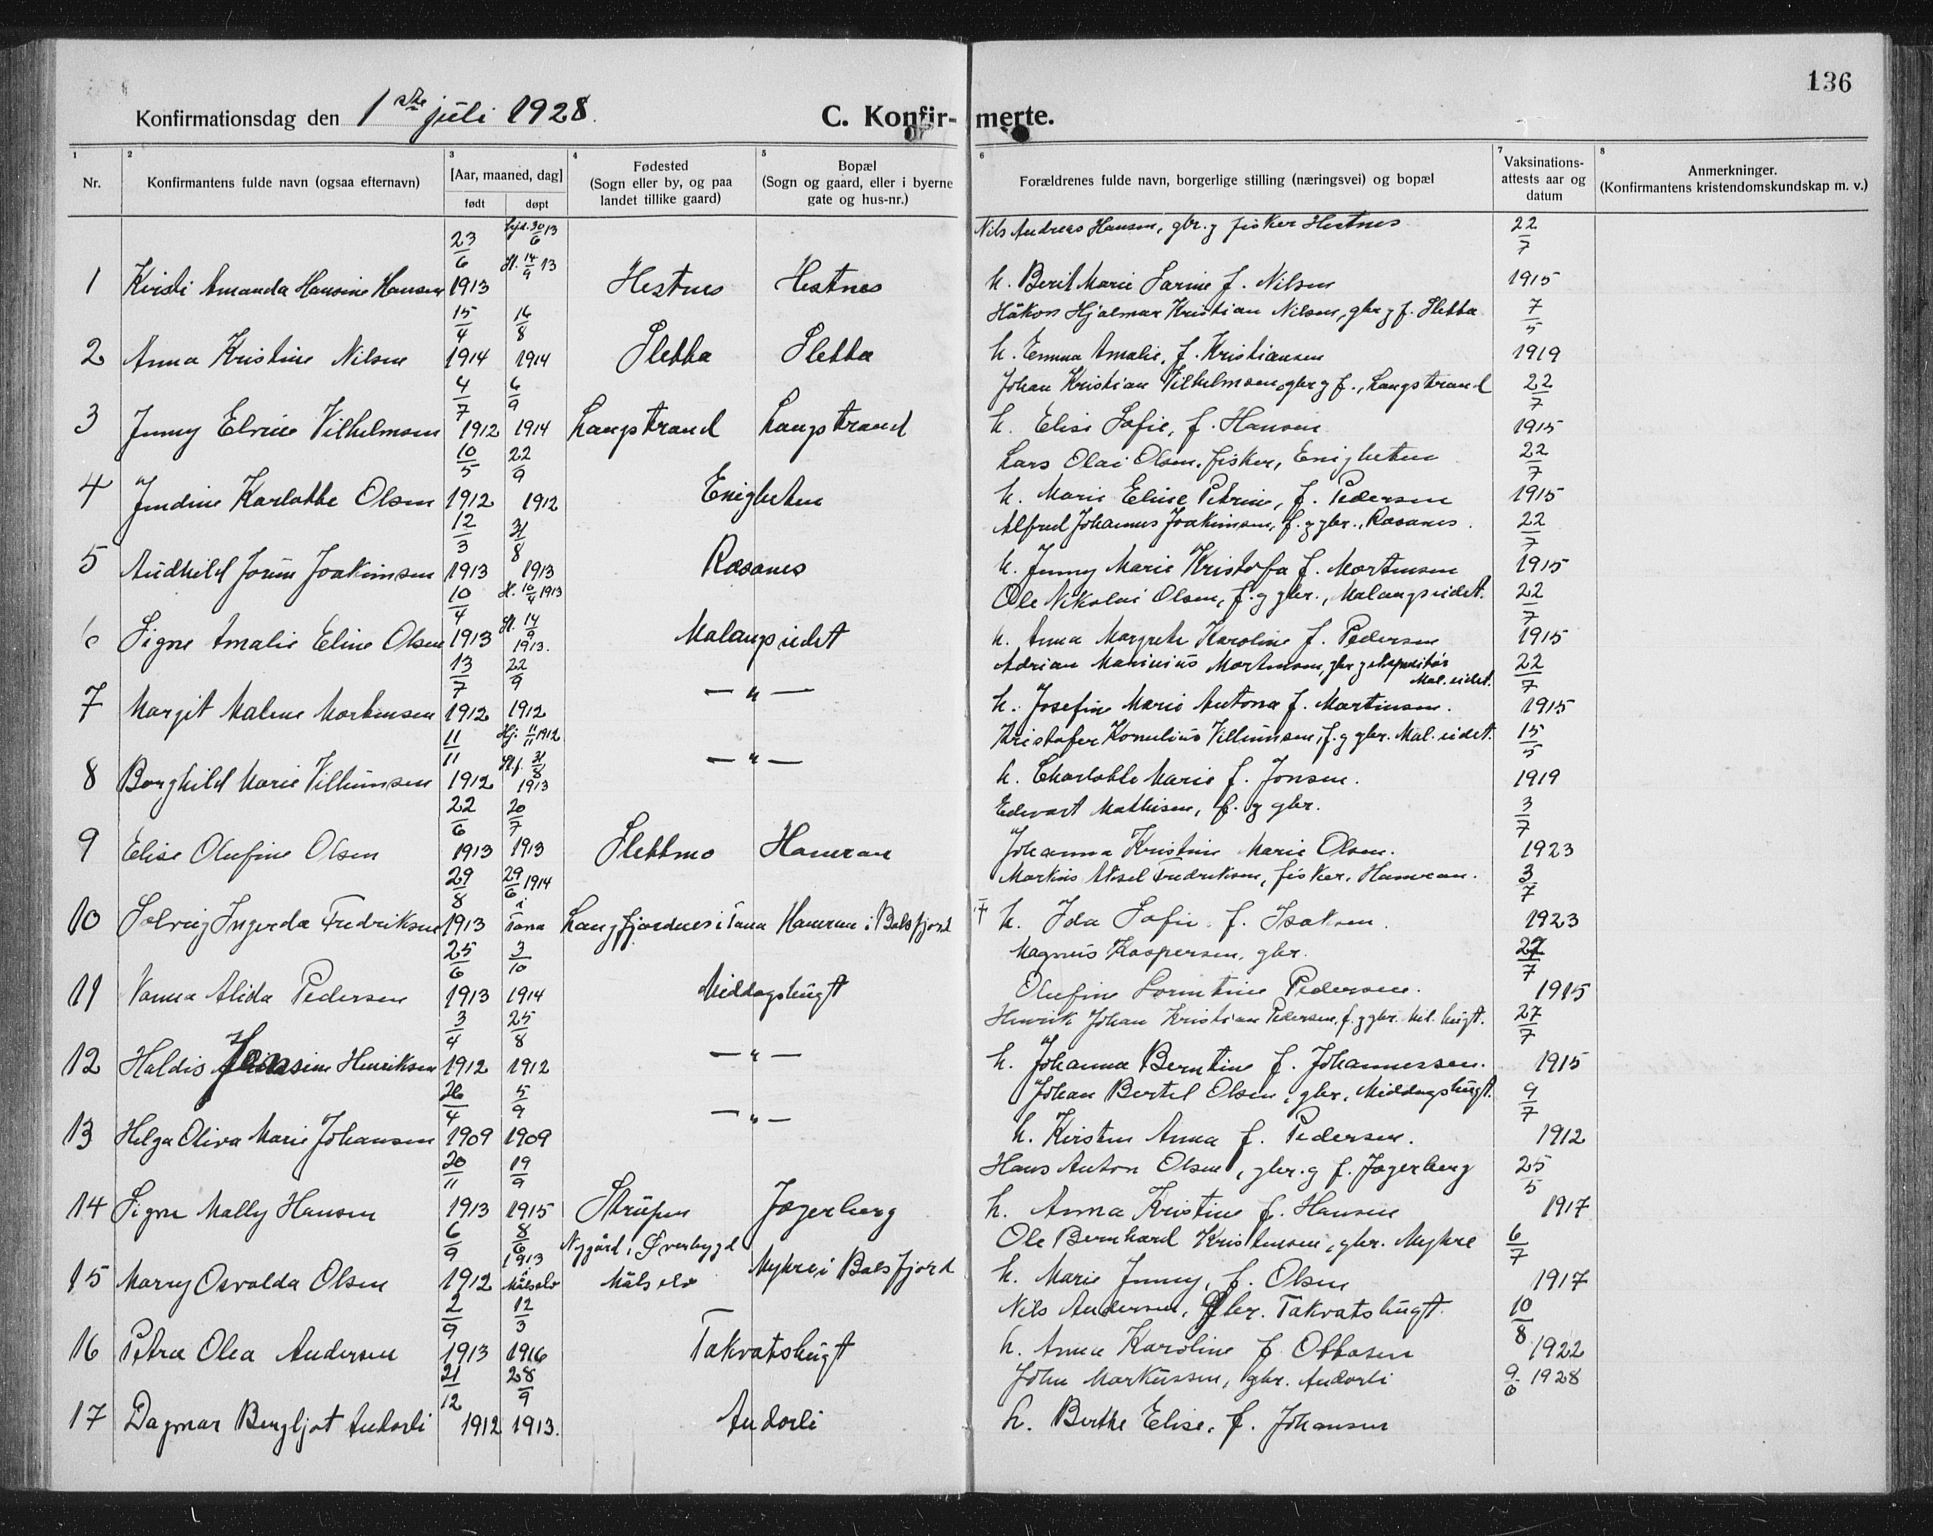 136
Konfirmationsdag den 1ste juli 1928.
C. Konfir- merte.
1 2 3 4 5 6 7 8
Nr.
Konfirmantens fulde navn (ogsaa efternavn)
[Aar, maaned, dag]
født døpt
Fødested
(Sogn eller by, og paa
landet tillike gaard)
Bopæl
(Sogn og gaard, eller i byerne
gate og hus-nr.)
Forældrenes fulde navn, borgerlige stilling (næringsvei) og bopæl
Vaksinations-
attests aar og
datum
Anmerkninger.
(Konfirmantens kristendomskundskap m. v.)
23/6 30/6 13 Nils Andreas Hansen, gbr. g fisker Hestnes 22/7
14/9 13
1 Kirsti Amanda Hansine Hansen 1913 Hestnes Hestnes h. Berit Marie Sarine f. Nilsen 1915
15/4 16/8 Håkon Hjalmar Kristian Nilsen, gbr g f. Sletta 7/5
2 Anna Kristine Nilsen 1914 1914 Sletta Sletta h. Emma Amalie, f. Kristiansen 1919
4/7 6/9 Johan Kristian Vilhelmsen, gbr g f., Langstrand 22/7
3 Jenny Elvine Vilhelmsen 1912 1914 Langstrand Langstrand h. Elise Sofie, f. Hansen 1915
10/5 22/9 Lars Olai Olsen, fisker, Enigheten 22/7
4 Jendine Karlotte Olsen 1912 1912 Enigheten h. Marie Elise Petrine, f. Pedersen 1915
12/3 31/8 Alfred Johannes Joakimsen, f. g gbr., Røsanes. 22/7
5 Audhild Jorun Joakimsen 1913 1913 Røsanes h. Jenny Marie Kristofa f. Mortensen 1915
10/4 1913 Ole Nikolai Olsen, f. g gbr., Malangseidet. 22/7
14/9
6 Signe Amalie Eline Olsen 1913 1913. Malangseidet h. Anna Margrete Karoline f. Pedersen 1915
13/7 22/9 Adrian Marinius Mortensen, gbr g ekspeditør Mal. eidet. 22/7
7 Margit Malene Mortensen 1912 1912 — " — h. Josefine Marie Antona f. Martinsen. 1915
11/11 11/11 1912 Kristofer Kornelius Villumsen, f. g gbr. Mal. eidet. 15/5
31/8
8 Borghild Marie Villumsen 1912 1913 — " — h. Charlotte Marie f. Jonsen. 1919
22/6 20/7 Edvart Mathisen, f. g gbr. 3/7
9 Elise Olufine Olsen 1913 1913 Slettmo Hamran Johanna Kristine Marie Olsen. 1923
29/8 29/6 1914 Markus Aksel Fredriksen, fisker, Hamran. 3/7
i
10 Solveig Ingerda Fredriksen 1913 Tana Langfjordnes i Tana Hamran i Balsfjord h. Ida Sofie f. Isaksen. 1923
25/6 3/10 Magnus Kaspersen, gbr. 27/7
11 Vanna Alida Pedersen 1913 1914 Middagsbugt Olufine Lorentine Pedersen. 1915
3/4 25/8 Henrik Johan Kristian Pedersen, f. g gbr. Mid. bugt. 27/7
12 Haldis Jensine Henriksen 1912 1912 — " — h. Johanna Berntine f. Johannessen. 1915
26/4 5/9 Johan Bertel Olsen, gbr., Middagsbugt. 9/7
13 Helga Oliva Marie Johansen 1909 1909 — " — h. Kirsten Anna f. Pedersen. 1912
20/11 19/9 Hans Anton Olsen, gbr. g f. Jogerberg 25/5
14 Signe Mally Hansen 1913 1915 Strupen Jogerberg h. Anna Kristine f. Hansen 1917
6/9 8/6 Nygård i Øverbygd Ole Bernhard Kristensen, gbr. Myhre 6/7
1913 i
15 Marry Osvalda Olsen 1912 Målselv Målselv Myhre i Balsfjord h. Marie Jenny, f. Olsen 1917
2/9 12/3 Nils Andersen, gbr. Takvatsbugt. 10/8
16 Petra Olea Andersen 1913 1916 Takvatsbugt h. Anna Karoline f. Ottosen 1922
21/12 28/9 John Markussen, gbr. Andorli 9/6 1928
17 Dagmar Bergljot Andorli 1912 1913. Andorli h. Berthe Elise, f. Johansen